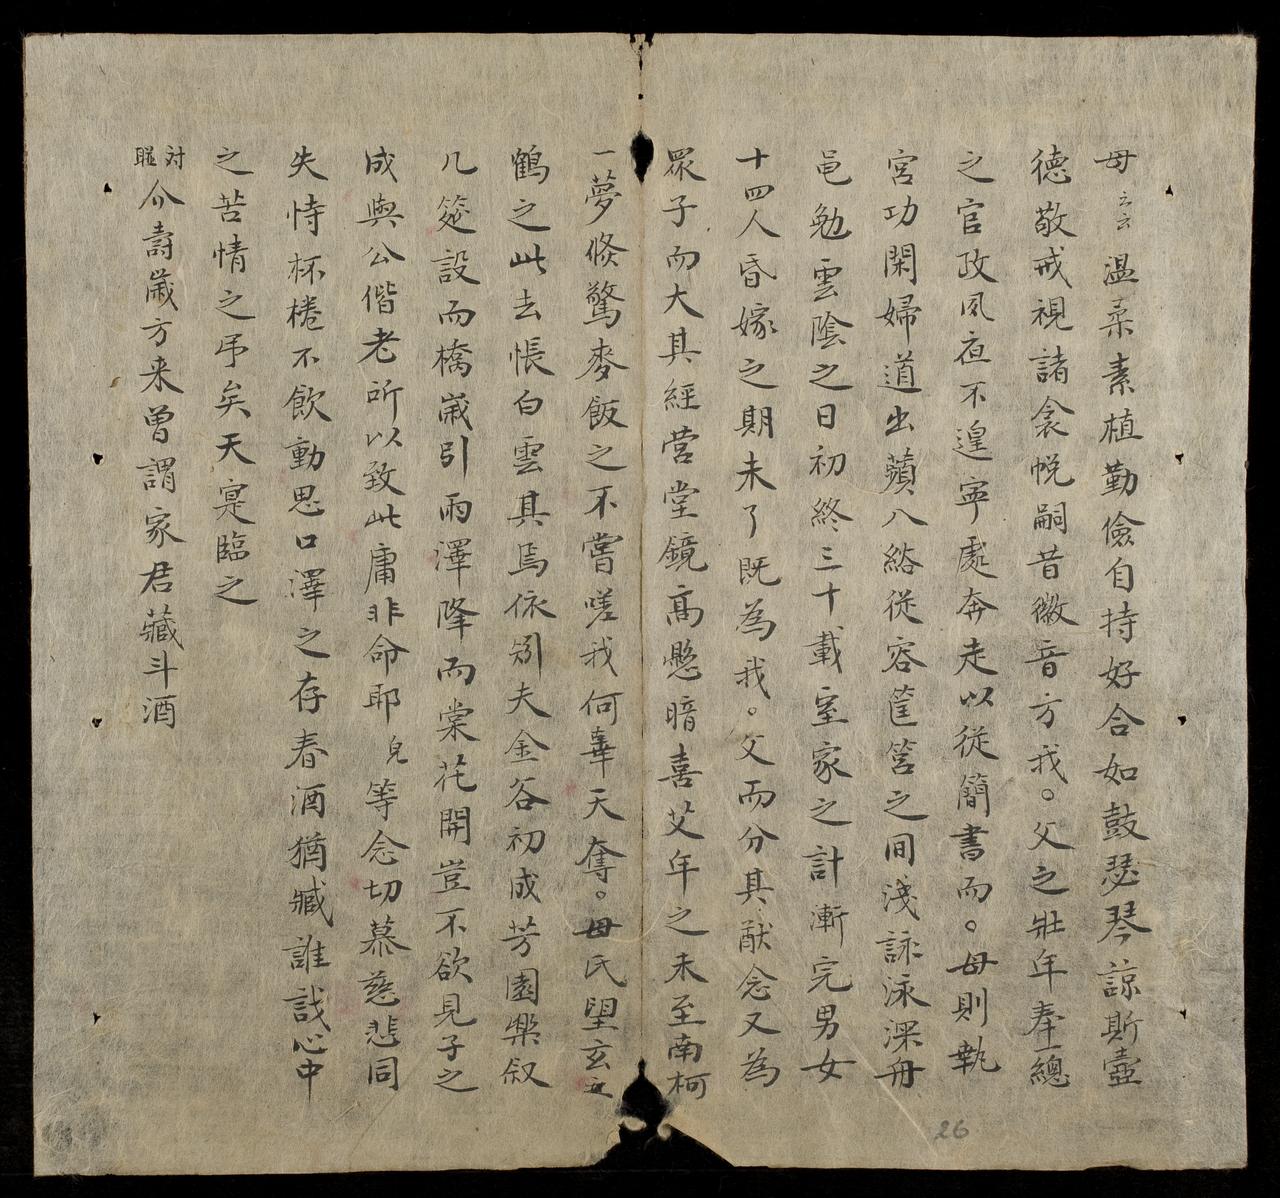 母云云溫柔素植勤儉自持好合如鼓瑟琴諒斯壼
德敬戒視諸衾帨嗣昔徽音方我。父之壯年奉總
之官政夙夜不遑寧處奔走以從簡書而。母則執
宮功閑婦道出蘋入綌從容筐筥之間淺詠泳深舟
邑勉雲陰之日初終三十載室家之計漸完男女
十四人昏嫁之期未了既為我。父而分其猷念又為
眾子而大其經營堂鏡高懸暗喜艾年之未至南柯
一夢倐驚麥飯之不嘗嗟我何辜天奪。母氏望玄
鶴之此去悵白雲其焉依矧夫金谷初成芳園樂叙
几筵設而橋歲引雨澤降而棠花開豈不欲見子之
成與公偕老所以致此庸非命耶兒等念切慕慈悲同
失恃杯棬不飲動思口澤之存春酒猶臧誰識心中
之苦情之弔矣天寔臨之
対聯介壽歲方来曾謂家君藏斗酒
26